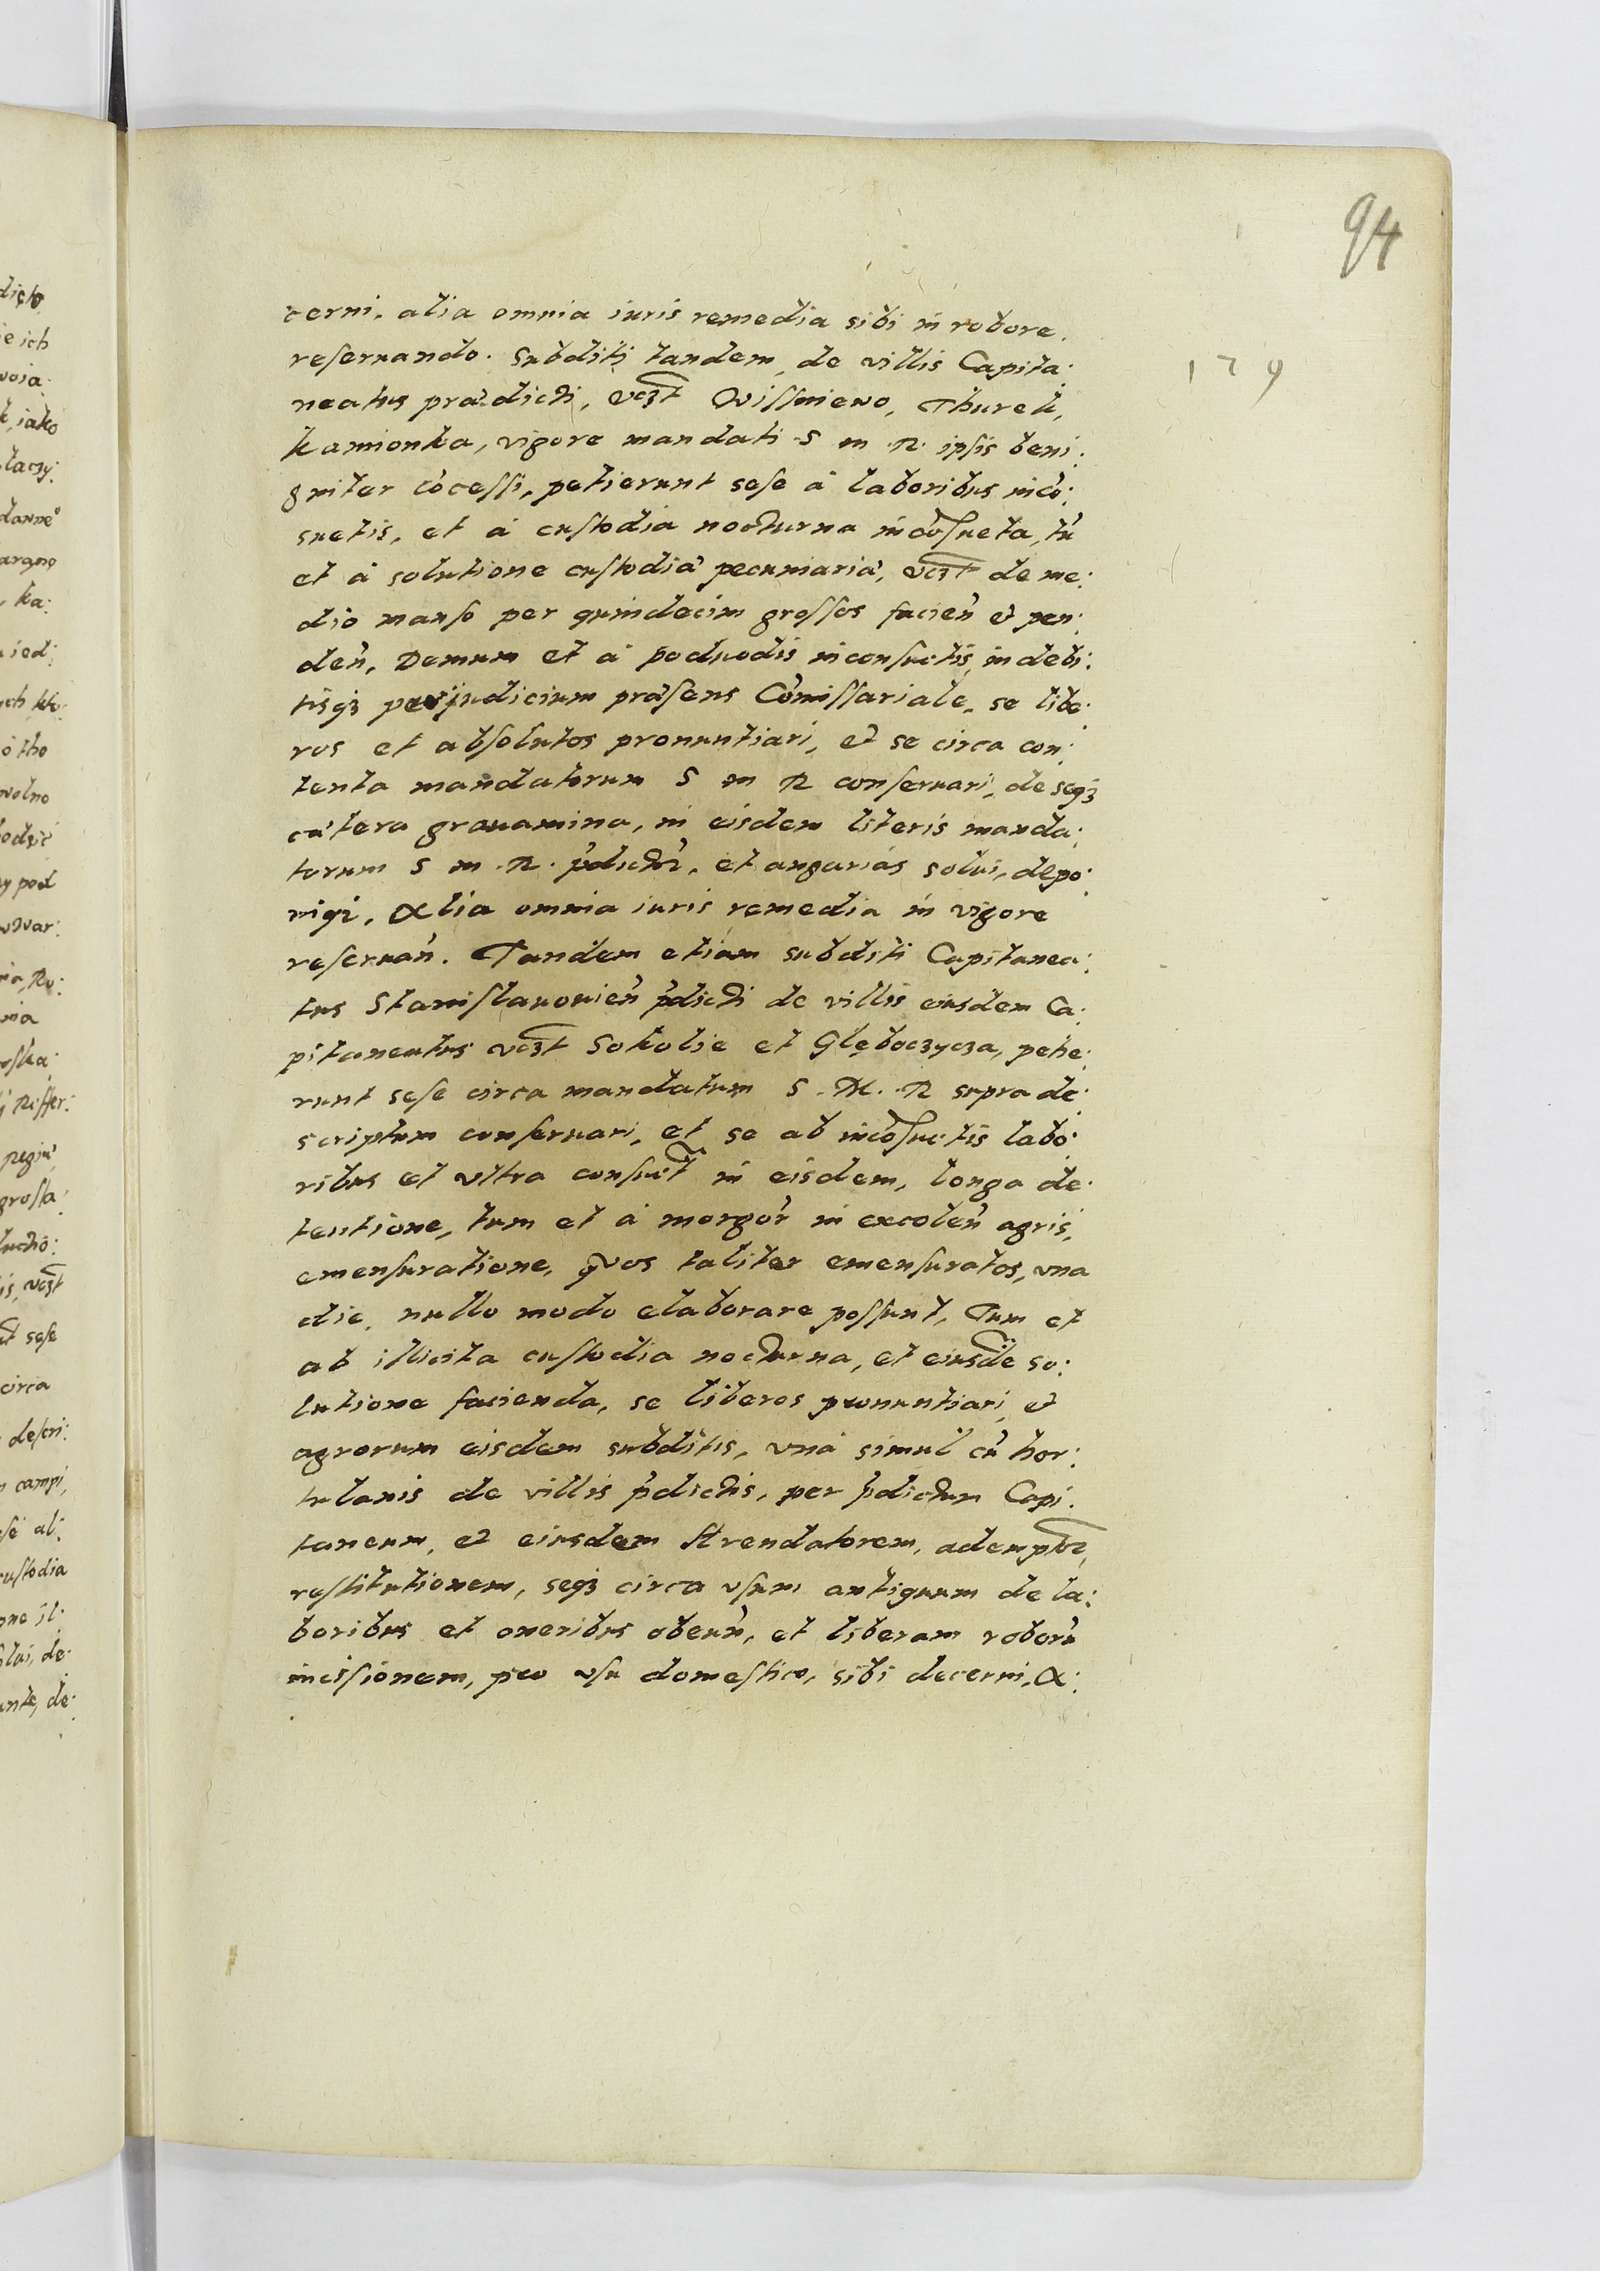 94
179
cerni, alia omnia iuris remedia sibi in robore
reseruando. Subditi tandem, de villis Capita:
neatus prædicti, vczt Wissniewo, Thurek,
Kamionka, vigore mandati S m R ipsis beni:
gniter cōcessi, petierunt sese à laboribus incō:
suetis, et à custodia nocturna incōsueta, tū
et à solutione custodiæ pecuniariæ, vczt de me:
dio manso per quindecim grossos facień et pen:
deń, Demum et à podwodis inconsuetis, indebi:
tisqȝ per judicium præsens Cōmissariale, se libe:
ros et absolutos pronuntiari, et se circa con:
tenta mandatorum S m R conseruari, de seqȝ
cætera grauamina, in eisdem literis manda:
torum S m R. p̄dictor̄, et angarias solui, depo:
niqȝ, Alia omnia iuris remedia in vigore
reseruań. Tandem etiam subditi Capitanea:
tus Stanislauouień p̄dicti de villis eiusdem Ca:
pitaneatus vczt Sokolie et Glęboczycza, petie:
runt sese circa mandatum S. M. R supra de:
scriptum conseruari, et se ab incōsuetis labo:
ribus et vltra consuet in eisdem, longa de:
tentione, tum et à morgōr in excoleń agris,
emensuratione, quos taliter emensuratos, vna
die, nullo modo elaborare possunt, Tum et
ab illicita custodia nocturna, et eiusdē so:
lutione facienda, se liberos pronuntiari, et
agrorum eisdem subditis, vnà simul cū hor:
tulanis de villis p̄dictis, per p̄dictum Capi:
taneum, et eiusdem Arendatorem, ademptor̄,
restitutionem, seqȝ circa vsum antiquum de la:
boribus et oneribus obeuń, et liberam roborū
incisionem, pro vsu domestico, sibi decerni, A: